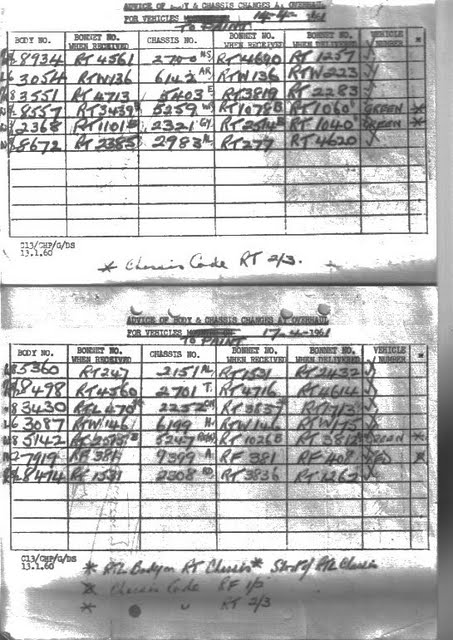 ADVICE OF BODY & CHASSIS CHANGES AT OVERHAUL
FOR VEHICLES 14-4-1961
TO PAINT
BODY NO. BONNET NO. WHEN RECEIVED CHASSIS NO. BONNET NO. WHEN RECEIVED BONNET NO. WHEN DELIVERED VEHICLE NUMBER *
8934 RT4561 2700 RT4640 RT1257 ✓
3054 RTW136 6142 AR RTW136 RTW223 ✓
3551 RT4713 5403 E RT3819 RT2283 ✓
8557 RT3439 5259 RT1078 RT1060 GREEN *
2368 RT1101 2321 RT2514 RT1040 GREEN *
8672 RT2385 2983 RT277 RT4620 ✓
C13/CHP/G/DS
13.1.60
* Chassis Code RT 2/3.
ADVICE OF BODY & CHASSIS CHANGES AT OVERHAUL
FOR VEHICLES 17-4-1961
TO PAINT
BODY NO. BONNET NO. WHEN RECEIVED CHASSIS NO. BONNET NO. WHEN RECEIVED BONNET NO. WHEN DELIVERED VEHICLE NUMBER *
5360 RT247 2151 RT1531 RT2432 ✓
8498 RT4360 2701 T. RT4716 RT4614 ✓
3430 RTL470 2252 RT3837 RT1713 ✓
3087 RTW146 6199 H. RTW146 RTW75 ✓
5142 5247 RT1026 RT3812 GREEN *
7919 RF381 9399 A. RF381 RF408 *
8474 RT1531 2308 RT3836 RT1262 ✓
C13/CHP/G/DS
13.1.60
* RTL Body on RT Chassis * RTL Chassis
* Chassis Code RF 1/2
* " RT 2/3